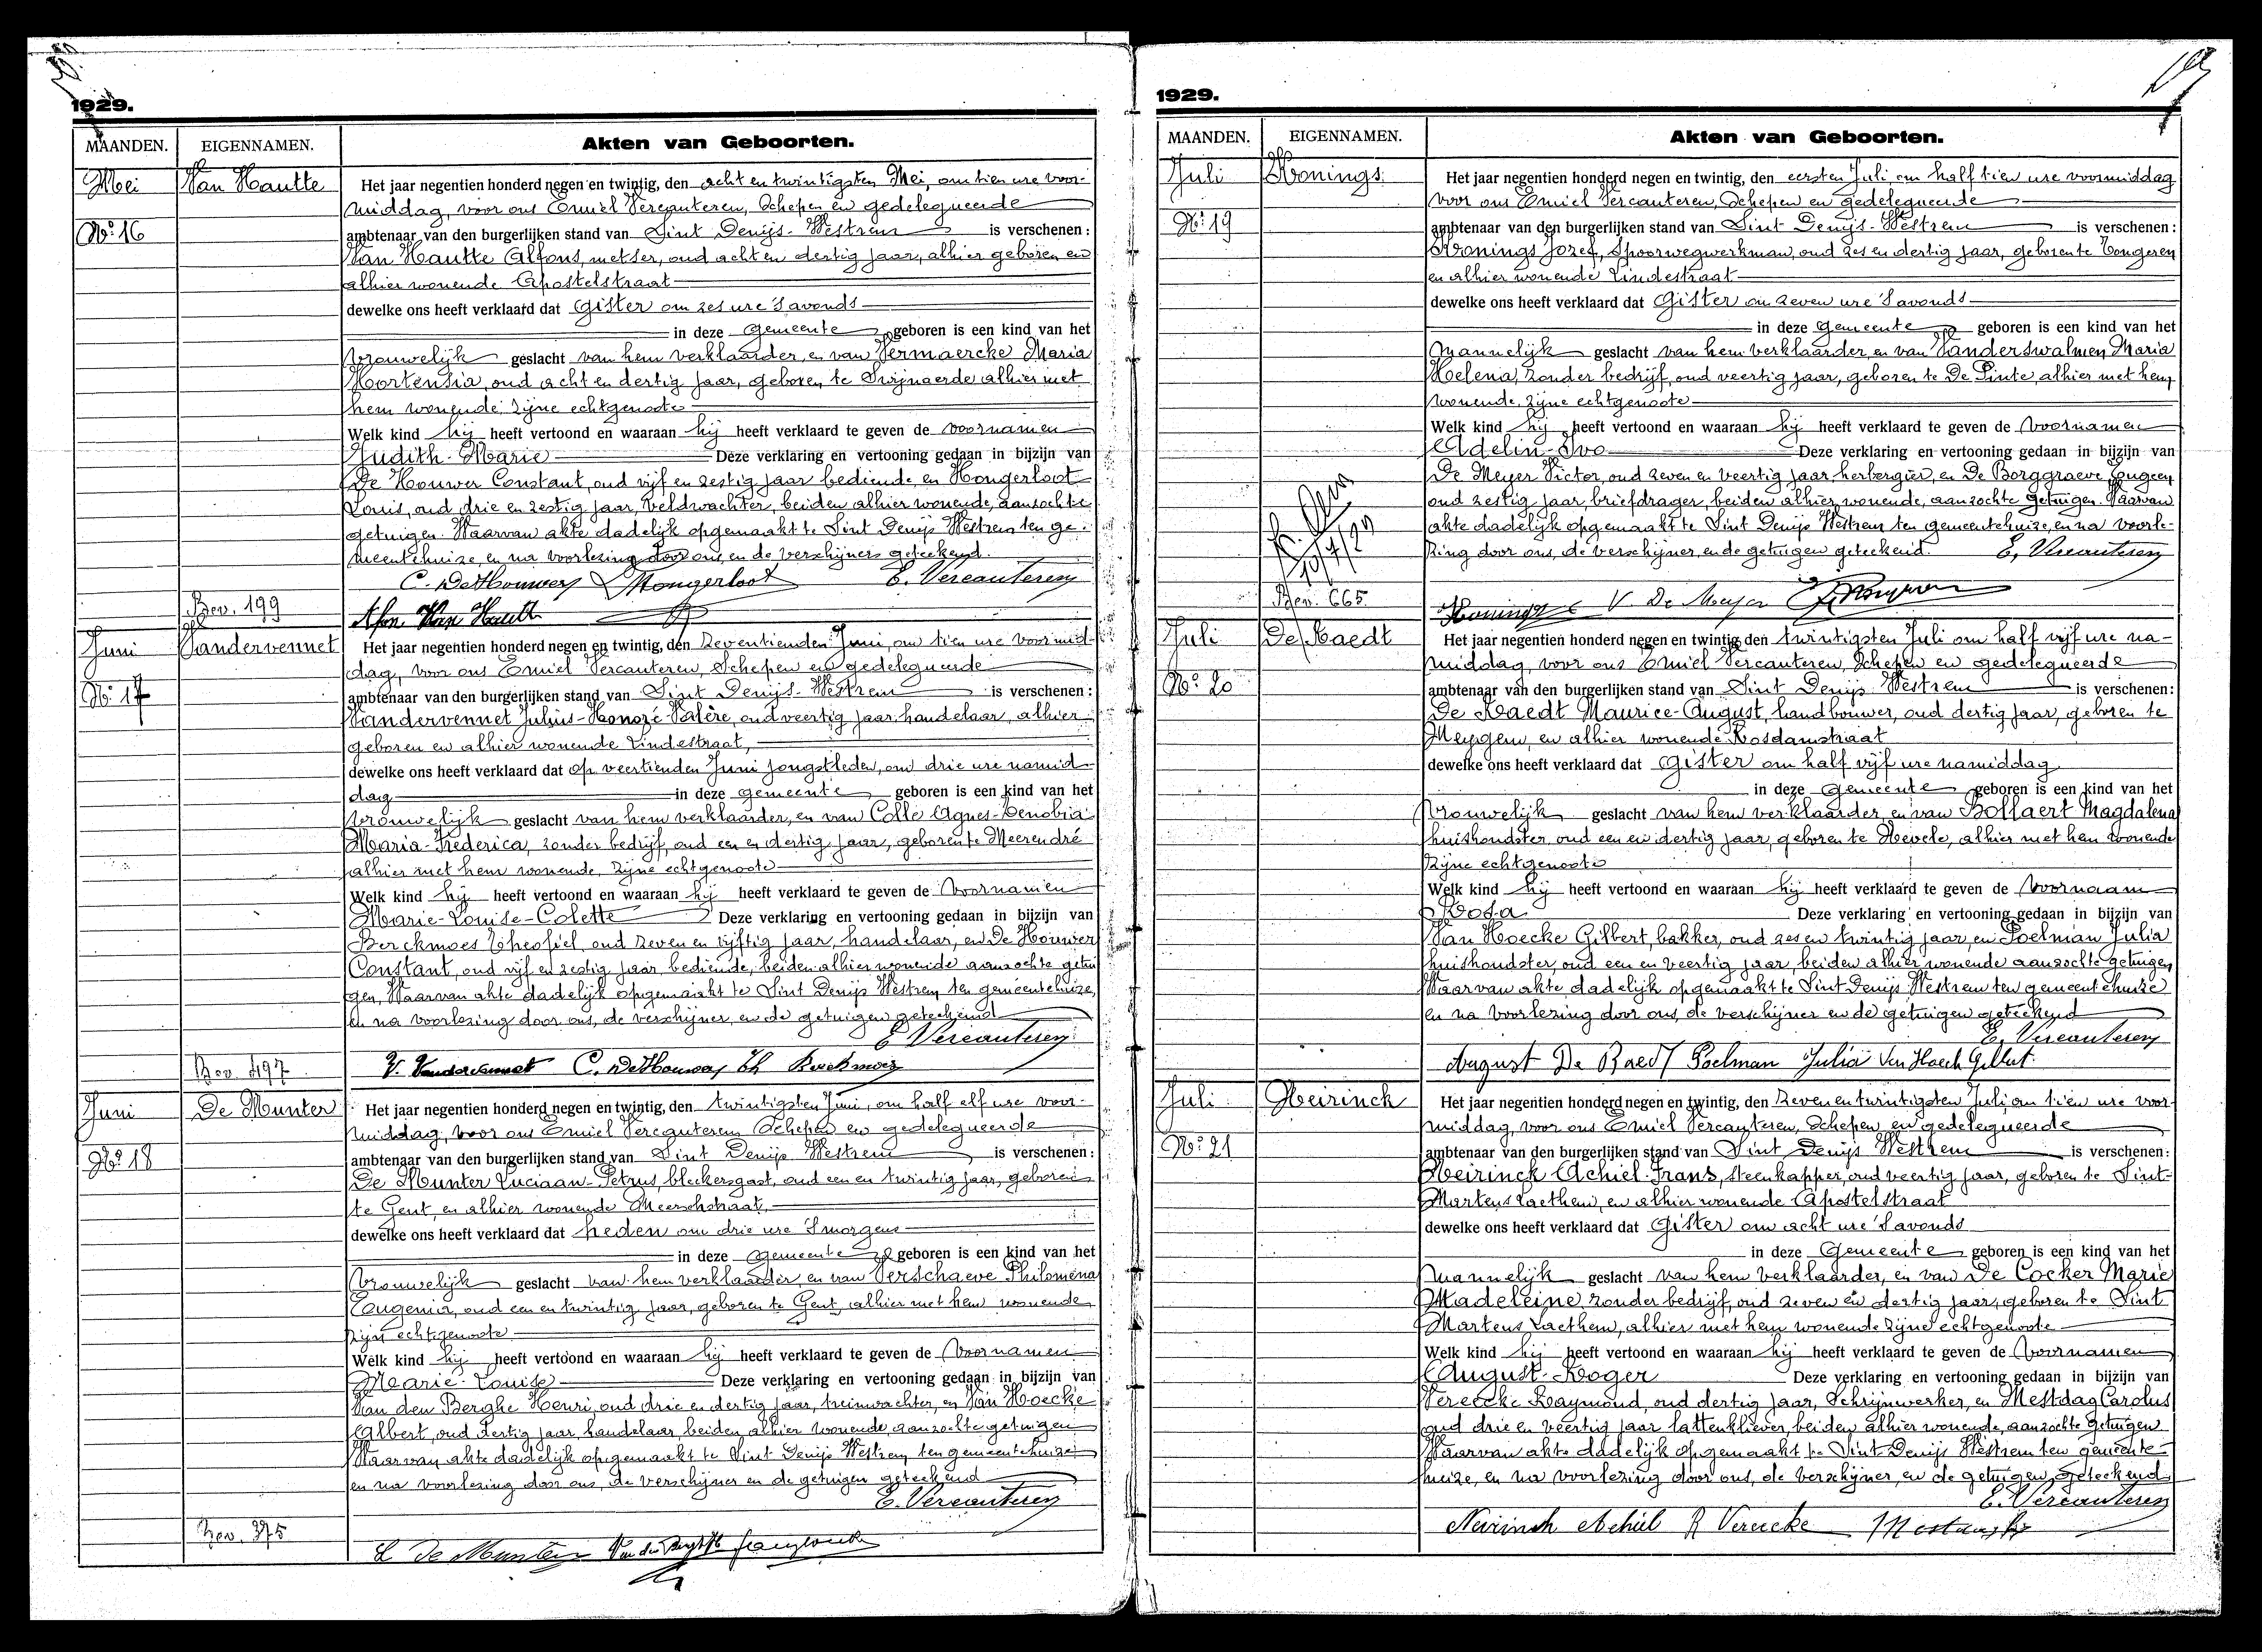 1929.
MAANDEN. EIGENNAMEN. Akten van Geboorten.
Mei Van Hautte Het jaar negentien honderd negen en twintig, den acht en twintigsten Mei, om tien ure voor-
middag, voor ons Emiel Vercauteren, Schepen en gedelegueerde
No 16 ambtenaar van den burgerlijken stand van Sint Denijs-Westrem is verschenen:
Van Hautte Alfons, metser, oud acht en dertig jaar, alhier geboren en
alhier wonende Apostelstraat
dewelke ons heeft verklaard dat Gister om zes ure 's avonds
in deze Gemeente geboren is een kind van het
Vrouwelijk geslacht van hem verklaarder, en van Vermaercke Maria
Hortensia, oud acht en dertig jaar, geboren te Swijnaerde alhier met
hem wonende, zijne echtgenoote
Welk kind hij heeft vertoond en waaraan hij heeft verklaard te geven de Voornamen
Judith-Marie Deze verklaring en vertooning gedaan in bijzijn van
De Houwer Constant, oud vijf en zestig jaar bediende, en Hongerloot
Louis, oud drie en zestig jaar, veldwachter, beiden alhier wonende, aanzochte
getuigen. Waarvan akte dadelijk opgemaakt te Sint Denijs Westrem ten ge-
meentehuize, en na voorlezing door ons, en de verschijners geteekend.
C. De Houwer L Hongerloot E. Vercauteren
Bev. 199 Alfon Van Hautte
Juni Vandervennet Het jaar negentien honderd negen en twintig, den Zeventienden Juni, om tien ure voormid-
dag, voor ons Emiel Vercauteren, Schepen en gedelegueerde
No 17 ambtenaar van den burgerlijken stand van Sint Denijs-Westrem is verschenen:
Vandervennet Julius-Honoré-Valère, oud veertig jaar, handelaar, alhier
geboren en alhier wonende Lindestraat,
dewelke ons heeft verklaard dat op veertienden Juni jongstleden, om drie ure namid-
dag in deze gemeente geboren is een kind van het
Vrouwelijk geslacht van hem verklaarder, en van Colle Agnes-Zenobia-
Maria-Frederica, zonder bedrijf, oud een en dertig jaar, geboren te Meerendré
alhier met hem wonende, zijne echtgenoote
Welk kind hij heeft vertoond en waaraan hij heeft verklaard te geven de Voornamen
Marie-Louise-Colette Deze verklaring en vertooning gedaan in bijzijn van
Berckmoes Theofiel, oud zeven en vijftig jaar, handelaar, en De Houwer
Constant, oud vijf en zestig jaar, bediende, beiden alhier wonende aanzochte getui
gen, Waarvan akte dadelijk opgemaakt te Sint Denijs Westrem ten gemeentehuize,
en na voorlezing door ons, de verschijner, en de getuigen geteekend
E. Vercauteren
Bev. 497 V. Vandervennet C. De Houwer Th Berckmoes
Juni De Munter Het jaar negentien honderd negen en twintig, den twintigsten Juni, om half elf ure voor-
middag, voor ons Emiel Vercauteren Schepen en gedelegueerde
No 18 ambtenaar van den burgerlijken stand van Sint Denijs Westrem is verschenen:
De Munter Luciaan-Petrus, bleekersgast, oud een en twintig jaar, geboren
te Gent, en alhier wonende Meerschstraat,
dewelke ons heeft verklaard dat heden om drie ure 's morgens
in deze Gemeente geboren is een kind van het
Vrouwelijk geslacht van hem verklaarder, en van Verschaeve Philomena
Eugenia, oud een en twintig jaar, geboren te Gent, alhier met hem wonende
zijne echtgenoote
Welk kind hij heeft vertoond en waaraan hij heeft verklaard te geven de Voornamen
Marie-Louise Deze verklaring en vertooning gedaan in bijzijn van
Van den Berghe Henri, oud drie en dertig jaar, treinwachter, en Van Hoecke
Albert, oud dertig jaar, handelaar, beiden alhier wonende, aanzochte getuigen
Waarvan akte dadelijk opgemaakt te Sint Denijs Westrem ten gemeentehuize
en na voorlezing door ons, de verschijner en de getuigen geteekend
E. Vercauteren
Bev. 375
L De Munter
19
1929.
MAANDEN. EIGENNAMEN. Akten van Geboorten.
Juli Konings Het jaar negentien honderd negen en twintig, den eersten Juli, om half tien ure voormiddag
voor ons Emiel Vercauteren, Schepen en gedelegueerde
No 19 ambtenaar van den burgerlijken stand van Sint Denijs-Westrem is verschenen:
Konings Jozef, Spoorwegwerkman, oud zes en dertig jaar, geboren te Tongeren
en alhier wonende Lindestraat
dewelke ons heeft verklaard dat Gister om zeven ure 's avonds
in deze Gemeente geboren is een kind van het
Mannelijk geslacht van hem verklaarder, en van Vanderswalmen Maria
Helena, zonder bedrijf, oud veertig jaar, geboren te De Pinte, alhier met hem
wonende, zijne echtgenoote
Welk kind hij heeft vertoond en waaraan hij heeft verklaard te geven de Voornamen
Adelin-Ivo Deze verklaring en vertooning gedaan in bijzijn van
De Meyer Victor, oud zeven en veertig jaar, herbergier, en De Borggraeve Eugeen
oud zestig jaar, briefdrager, beiden alhier wonende, aanzochte getuigen. Waarvan
akte dadelijk opgemaakt te Sint Denijs Westrem ten gemeentehuize, en na voorle-
zing door ons, de verschijner, en de getuigen geteekend. E. Vercauteren
Bev. 665 Konings V. De Meyer
Juli De Raedt Het jaar negentien honderd negen en twintig, den twintigsten Juli om half vijf ure na-
middag, voor ons Emiel Vercauteren, Schepen en gedelegueerde
No 20 ambtenaar van den burgerlijken stand van Sint Denijs Westrem is verschenen:
De Raedt Maurice-August, landbouwer, oud dertig jaar, geboren te
Meygem, en alhier wonende Rosdamstraat
dewelke ons heeft verklaard dat gister om half vijf ure namiddag
in deze Gemeente geboren is een kind van het
Vrouwelijk geslacht van hem verklaarder, en van Bollaert Magdalena
huishoudster, oud een en dertig jaar, geboren te Nevele, alhier met hem wonende
zijne echtgenoote
Welk kind hij heeft vertoond en waaraan hij heeft verklaard te geven de Voornaam
Rosa Deze verklaring en vertooning gedaan in bijzijn van
Van Hoecke Gilbert, bakker, oud zes en twintig jaar, en Poelman Julia
huishoudster, oud een en veertig jaar, beiden alhier wonende aanzochte getuigen
Waarvan akte dadelijk opgemaakt te Sint Denijs Westrem ten gemeentehuize
en na voorlezing door ons, de verschijner en de getuigen geteekend
E. Vercauteren
August De Raedt Poelman Julia Van Hoeck Gilbert
Juli Neirinck Het jaar negentien honderd negen en twintig, den Zeven en twintigsten Juli, om tien ure voor-
middag, voor ons Emiel Vercauteren, Schepen en gedelegueerde
No 21 ambtenaar van den burgerlijken stand van Sint Denijs Westrem is verschenen:
Neirinck Achiel-Frans, steenkapper, oud veertig jaar, geboren te Sint-
Martens Laethem, en alhier wonende Apostelstraat
dewelke ons heeft verklaard dat Gister om acht ure 's avonds
in deze Gemeente geboren is een kind van het
Mannelijk geslacht van hem verklaarder, en van De Cocker Marie
Madeleine, zonder bedrijf, oud zeven en dertig jaar, geboren te Sint
Martens Laethem, alhier met hem wonende zijne echtgenoote
Welk kind hij heeft vertoond en waaraan hij heeft verklaard te geven de Voornamen
August-Roger Deze verklaring en vertooning gedaan in bijzijn van
Verecke Raymond, oud dertig jaar, Schrijnwerker, en Mestdag Carolus
oud drie en veertig jaar lattenkliever, beiden alhier wonende, aanzochte getuigen
Waarvan akte dadelijk opgemaakt te Sint Denijs Westrem ten gemeente-
huize, en na voorlezing door ons, de verschijner, en de getuigen, geteekend
E. Vercauteren
Neirinck Achiel R Verecke